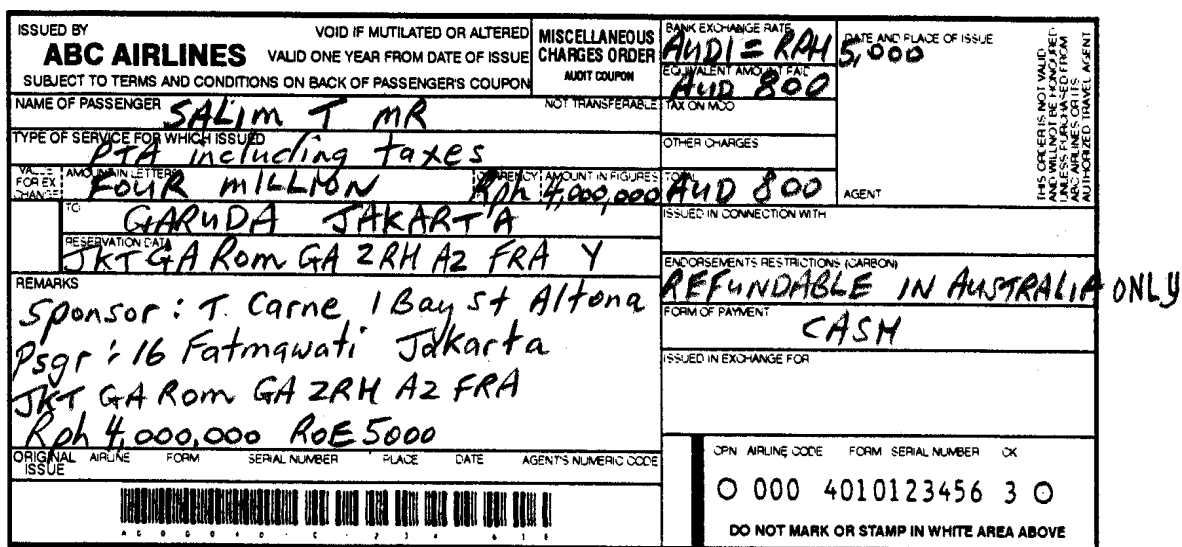 ISSUED BY VOID IF MUTILATED OR ALTERED
ABC AIRLINES VALID ONE YEAR FROM DATE OF ISSUE
SUBJECT TO TERMS AND CONDITIONS ON BACK OF PASSENGER'S COUPON
MISCELLANEOUS
CHARGES ORDER
AUDIT COUPON
BANK EXCHANGE RATE
AUD1 = RPH 5,000
DATE AND PLACE OF ISSUE
EQUIVALENT AMOUNT PAID
AUD 800
THIS ORDER IS NOT VALID
AND WILL NOT BE HONOURED
UNLESS PURCHASED FROM
ABC AIRLINES OR ITS
AUTHORIZED TRAVEL AGENT
NAME OF PASSENGER NOT TRANSFERABLE
SALIM T MR
TAX ON MCO
TYPE OF SERVICE FOR WHICH ISSUED
PTA including taxes
OTHER CHARGES
VALUE FOR EXCHANGE
AMOUNT IN LETTERS
FOUR MILLION
CURRENCY
Rph
AMOUNT IN FIGURES
4,000,000
TOTAL
AUD 800
AGENT
TO
GARUDA JAKARTA
ISSUED IN CONNECTION WITH
RESERVATION DATA
JKT GA Rom GA ZRH AZ FRA Y
ENDORSEMENTS RESTRICTIONS (CARBON)
REFUNDABLE IN AUSTRALIA ONLY
REMARKS
Sponsor : T. Carne 1 Bay St Altona
Psgr : 16 Fatmawati Jakarta
JKT GA Rom GA ZRH AZ FRA
Rph 4,000,000 RoE 5000
FORM OF PAYMENT
CASH
ISSUED IN EXCHANGE FOR
ORIGINAL ISSUE AIRLINE FORM SERIAL NUMBER PLACE DATE AGENT'S NUMERIC CODE
CPN AIRLINE CODE FORM SERIAL NUMBER CK
0 000 4010123456 3 0
DO NOT MARK OR STAMP IN WHITE AREA ABOVE